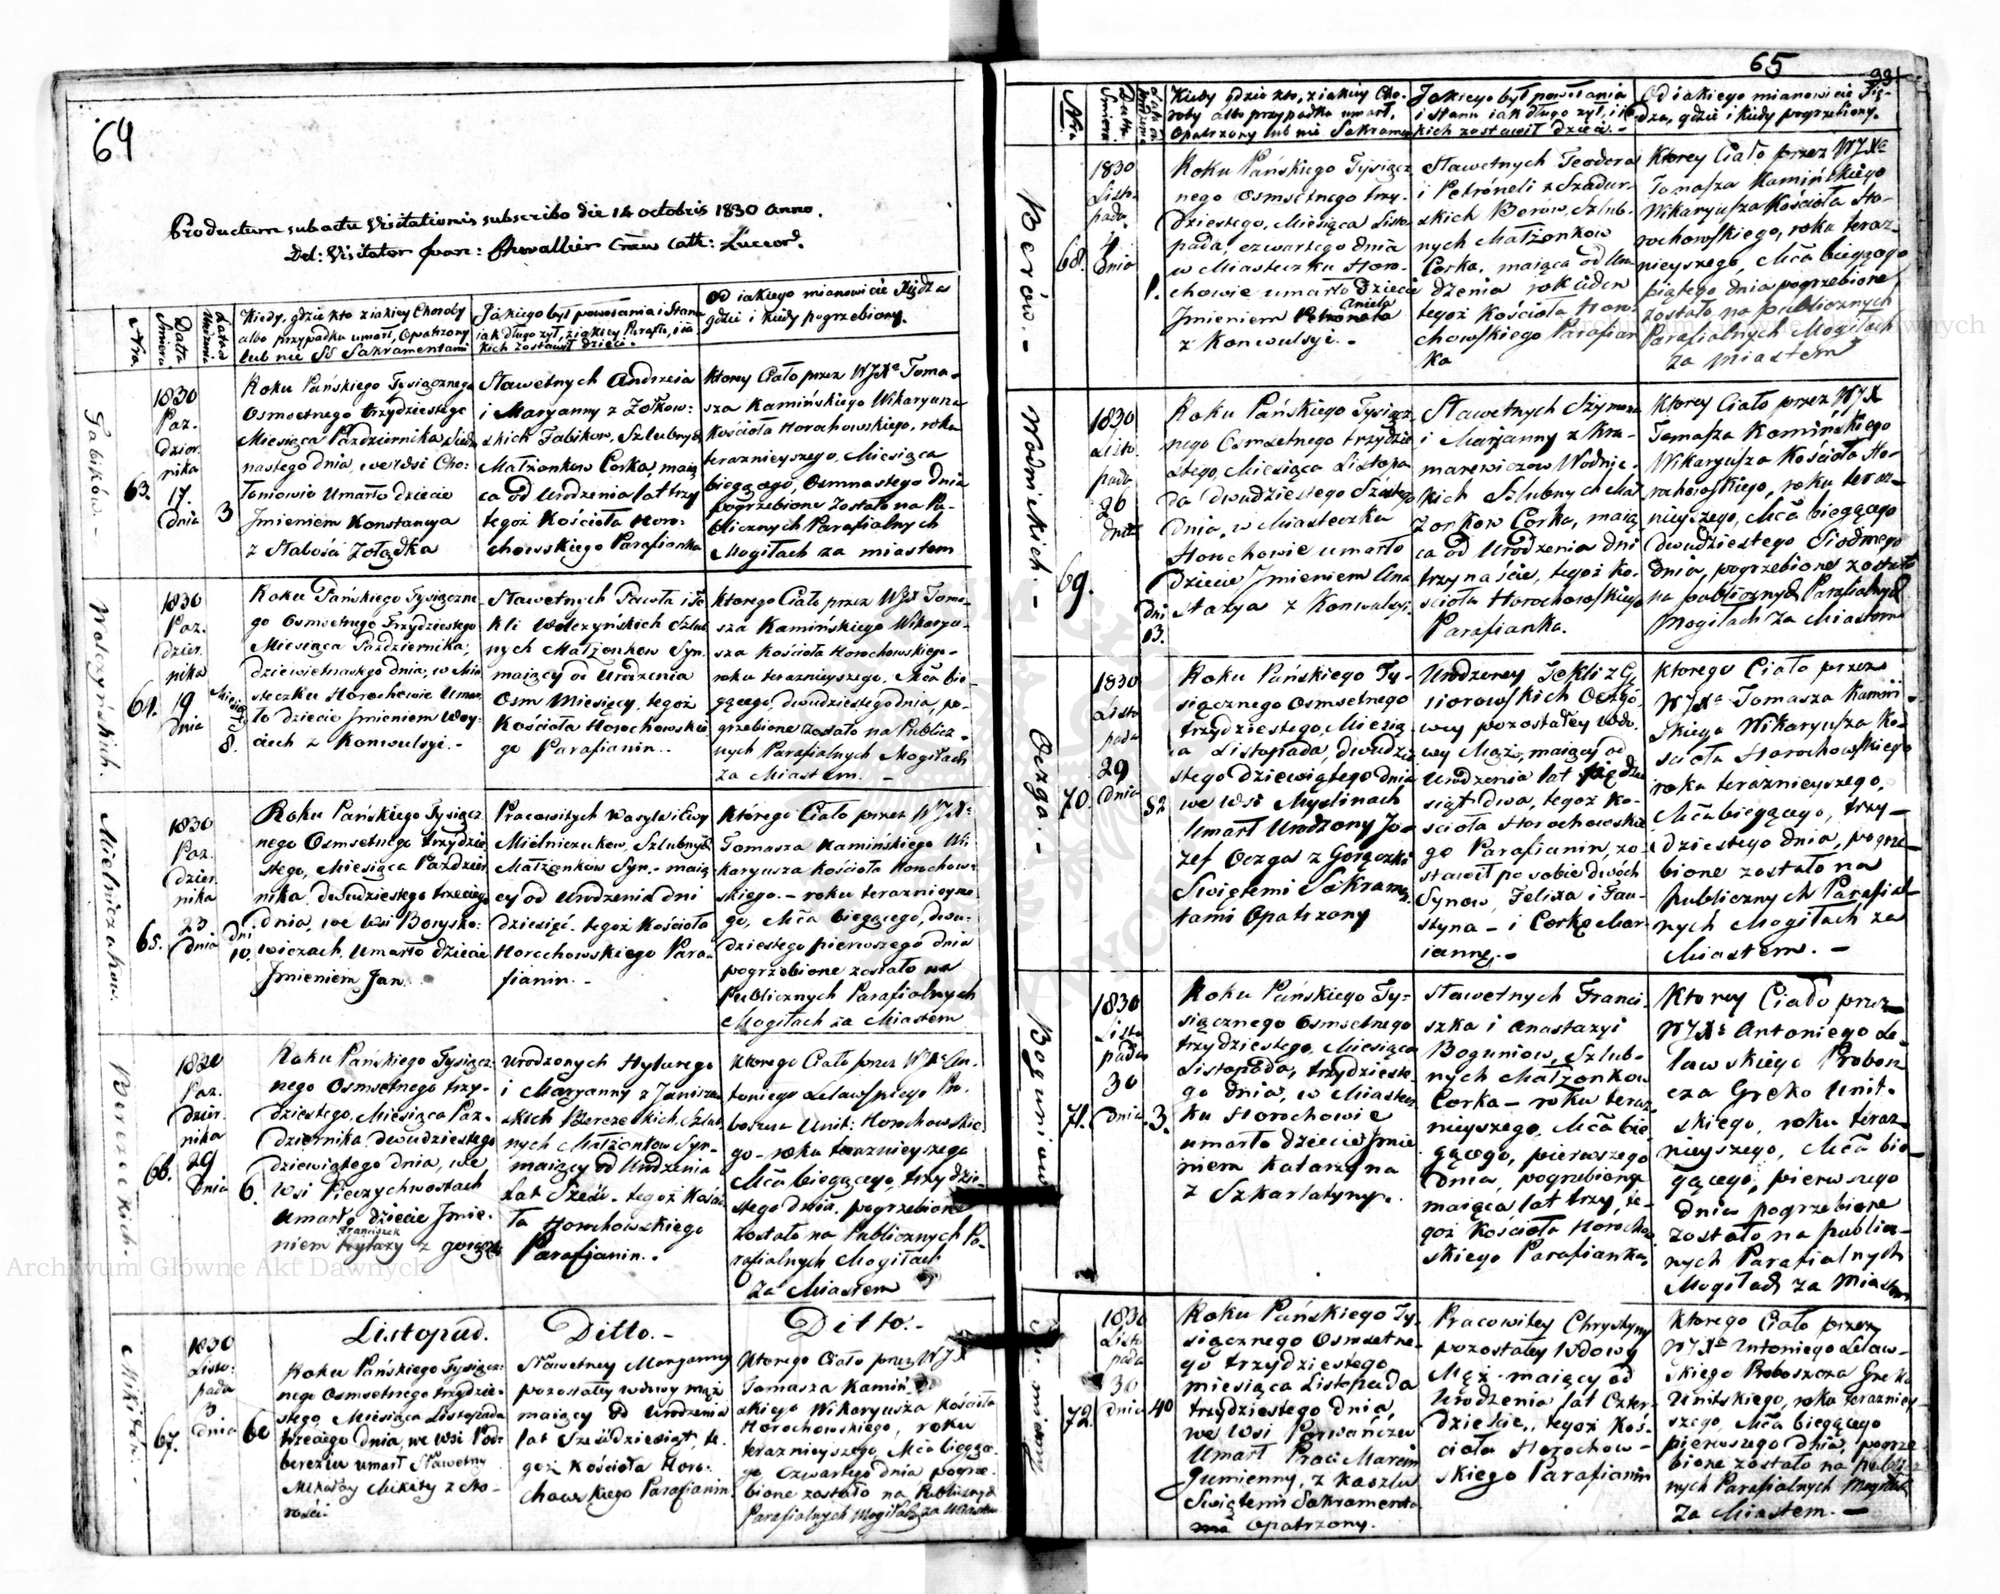 64
Productum sub actu Visitationis subscribo die 14 octobris 1830 Anno.
Del: Visitator
Nra
Datta Śmierci
Kiedy, gdzie kto z iakiey Choroby
albo przypadku umarł, Opatrzony
lub nie SS Sakramentami
Jakiego był powołania i Stanu
iak długo żył, z iakiey Parafii, i ia-
kich zostawił dzieci.
Od iakiego mianowicie Xiędza
gdzie i kiedy pogrzebiony.
Jabików -
63.
1830
Paz-
dzier-
nika
17.
Dnia
3
Roku Pańskiego Tysiącznego
Osmsetnego trzydziestego
Miesiąca Października Siedm
nastego dnia, we Wsi Cho-
łoniowie Umarło dziecie
Jmieniem Konstancya
z Słabości Żołądka
Sławetnych Andrzeia
i Maryanny z Żołkow-
skich Jabikow, Szlubnych
Małżonkow Corka, maią
ca od Urodzenia lat trzy
tegoż Kościoła Horo-
chowskiego Parafianka
Ktorey Ciało przez WJXa Toma-
sza Kamińskiego Wikaryusza
Kościoła Horochowskiego, roku
teraznieyszego, Miesiąca
biegącego, Osmnastego dnia
pogrzebione Zostało na Pu-
blicznych Parafialnych
Mogiłach za miastem
Wołczyńskich.
64.
1830
Paz-
dzier-
nika
19
Dnia
8.
Roku Pańskiego Tysiączne
go Osmsetnego Trzydziestego
Miesiąca Października,
dziewietnastego dnia, w Mia
steczku Horochowie Umar-
ło dziecie Jmieniem Woy-
ciech z Konwulsyi. -
Sławetnych Pawła i Te
kli Wołczyńskich Szlub
nych Małżonkow Syn,
maiący od Urodzenia
Osm Miesięcy, tegoż
Kościoła Horochowskie
go Parafianin. -
Ktorego Ciało przez WJX Toma-
sza Kamińskiego Wikaryu-
sza Kościoła Horochowskiego -
roku teraznieyszego, Mca bie-
gącego, dwudziestego dnia, po-
grzebione Zostało na Publicz-
nych Parafialnych Mogiłach
za Miastem. -
Mielniczukow.
65.
1830
Paz-
dzier-
nika
23
Dnia
dni
10.
Roku Pańskiego Tysiącz
nego Osmsetnego trzydzie
stego, Miesiąca Paździer
nika, dwudziestego trzeciego
Dnia, we Wsi Borysko-
wiczach, Umarło dziecie
Jmieniem Jan.
Pracowitych Wasyla i Ewy
Mielniczukow, Szlubnych
Małżonkow Syn, - maią
cy od Urodzenia dni
dziesięć, tegoż Kościoła
Horochowskiego Para-
fianin. -
Którego Ciało przez WJXa
Tomasza Kamińskiego Wi-
karyusza Kościoła Horochow-
skiego. - roku teraznieysze-
go, Mca biegącego, dwu-
dziestego pierwszego dnia
pogrzebione zostało na
Publicznych Parafialnych
Mogiłach za Miastem
Bereżeckich. -
66.
1830
Paz-
dzier-
nika
29
Dnia
6.
Roku Pańskiego Tysiącz-
nego Osmsetnego trzy-
dziestego, Miesiąca Paz-
dziernika dwudziestego
dziewiątego dnia, we
Wsi Pieczychwostach
Umarło dziecie Jmie-
Franciszek
niem z gorączki
Urodzonych Hylarego
i Maryanny z Janiszew
skich Bereżeckich, Szlub
nych Małżonkow Syn -
maiący od Urodzenia
Lat Sześć - tegoż Kościo
ła Horochowskiego
Parafianin. -
Ktorego Ciało przez WJXa An-
toniego Lelawskiego Pro-
boszcza Unit: Horochowskie
go - roku teraznieyszego
Mca biegącego, trzydzie-
stego dnia, pogrzebione
Zostało na Publicznych Pa-
rafialnych Mogiłach
Za Miastem
Mikitów. -
67.
1830
Listo-
pada
3
Dnia
60
Listopad.
Roku Pańskiego Tysiącz-
nego Osmsetnego trzydzie-
stego, Miesiąca Listopada
trzeciego dnia, we Wsi Pod-
bereziu umarł Sławetny
Mikołay Mikity z Sta-
rości.
Ditto. -
Sławetney Maryanny
pozostałey wdowy mąż
maiący Od Urodzenia
lat Sześćdziesiąt, te-
goż Kościoła Horo-
chowskiego Parafianin.
Ditto. -
Ktorego Ciało przez WJX
Tomasza Kamiń-
skiego Wikaryusza Kościoła
Horochowskiego, roku
teraznieyszego, Mca biegące-
go Czwartego dnia pogrze-
bione zostało na Publicznych
Parafialnych Mogiłach za Miastem
65
Nra
Datta Śmierci
Kiedy gdzie kto, z iakiey Cho-
roby albo przypadku umarł,
Opatrzony lub nie Sakramen
Jakiego był powołania
i Stanu iak długo żył, i ia-
kich zostawił dzieci. -
Od iakiego mianowicie Xię-
dza, gdzie i kiedy pogrzebiony.
Berów. -
68.
1830
Listo-
pada.
4
Dnia
1.
Roku Pańskiego Tysiącz
nego Osmsetnego trzy-
dziestego, Miesiąca Listo-
pada, czwartego dnia
w Miasteczku Horo-
chowie umarło Dziecie
Aniela
Jmieniem Petronela
z Konwulsyi. -
Sławetnych Teodora
i Petroneli z Szadur-
skich Berów, Szlub-
nych Małżonkow
Corka, maiąca od Uro
dzenia rok ieden
tegoż Kościoła Horo-
chowskiego Parafian
ka
Ktorey Ciało przez WJXa
Tomasza Kamińskiego
Wikaryusza Kościoła Ho-
rochowskiego, roku teraz-
nieyszego, Mca biegącego
piątego dnia pogrzebione
zostało na publicznych
Parafialnych Mogiłach
za miastem
Wodnickich. -
69.
1830
Listo
pada
26
Dnia
dni
13.
Roku Pańskiego Tysiącz
nego Osmsetnego trzydzie
stego, Miesiąca Listopa
da dwudziestego Szóstego
Dnia, w Miasteczku
Horochowie umarło
dziecie Jmieniem Ana
stazya z Konwulsyi.
Sławetnych Szymona
i Maryanny z Kra-
marewiczow Wodnic-
kich Szlubnych Mał
żonkow Corka, maią
ca od Urodzenia dni
trzynaście, tegoż Ko-
ścioła Horochowskiego
Parafianka.
Ktorey Ciało przez WJX
Tomasza Kaminskiego
Wikaryusza Kościoła Ho-
rochowskiego, roku teraz-
nieyszego, Mca biegącego
dwudziestego Siodmego
dnia, pogrzebione zostało
na publicznych Parafialnych
Mogiłach Za Miastem
Ożga. -
70.
1830
Listo
pada
29
Dnia
52
Roku Pańskiego Ty-
siącznego Osmsetnego
trzydziestego, Miesią
ca Listopada, dwudzie
stego dziewiątego dnia
we Wsi Myslinach
Umarł Urodzony Jo-
zef Ożga z Gorączki
Swiętemi Sakramen-
tami Opatrzony
Urodzoney Tekli z Gą
siorowskich Ożgo-
wey pozostałey wdo-
wy Mąż, maiący od
Urodzenia lat pięćdzie
siąt dwa, tegoż Ko-
ścioła Horochowskie
go Parafianin, zo-
stawił po sobie dwóch
Synow, Felixa i Fau-
styna - i Corkę Mar
iannę. -
Ktorego Ciało przez
WJXa Tomasza Kamiń-
skiego Wikaryusza Ko-
scioła Horochowskiego
roku teraznieyszego,
Mca biegącego, trzy-
dziestego dnia, pogrze-
bione zostało na
publicznych Parafial-
nych Mogiłach za
Miastem. -
Boguniow
71.
1830
Listo
pada
30
Dnia
3.
Roku Pańskiego Ty-
siącznego Osmsetnego
trzydziestego, Miesiąca
Listopada, trzydzieste-
go dnia, w Miastecz
ku Horochowie
umarło dziecie Jmie
niem Katarzyna
z Szkarlatyny.
Sławetnych Franci-
szka i Anastazyi
Boguniow, Szlub-
nych Małżonkow
Corka - roku teraz-
nieyszego, Mca bie-
gącego, pierwszego
Dnia, pogrzebiona
maiąca lat trzy, te-
goż Kościoła Horochow
skiego Parafianka,
Ktorey Ciało przez
WJXa Antoniego Le-
lawskiego Probosz
cza Greko Unit-
skiego, roku teraz-
nieyszego, Mca bie-
gącego, pierwszego
Dnia pogrzebione
zostało na publicz-
nych Parafialnych
Mogiłach za Miastem
72.
1830
Listo
pada
30
Dnia
40
Roku Pańskiego Ty-
siącznego Osmsetne-
go trzydziestego
miesiąca Listopada
trzydziestego dnia,
we Wsi Perwańczu
Umarł Praci Marcin
Gumienny, z Kaszlu
Swiętemi Sakramenta
mi Opatrzony.
Pracowitey Chrystyny
pozostałey Wdowy
Mąż - maiący od
Urodzenia lat Czter-
dzieście, tegoż Koś-
cioła Horochow-
skiego Parafianin
Ktorego Ciało przez
WJXa Antoniego Lelaw-
skiego Proboszcza Greko
Unitskiego, roku terazniey-
szego, Mca biegącego
pierwszego dnia, pogrze-
bione zostało na publicz
nych Parafialnych Mogiłach
Za Miastem. -
Archiwum Główne Akt Dawnych
Archiwum Główne Akt Dawnych